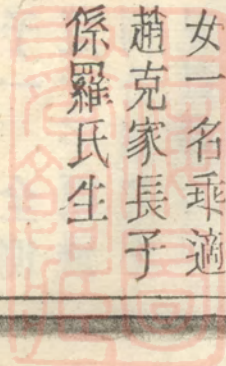 女一名乖適
趙克家長子
係羅氏生